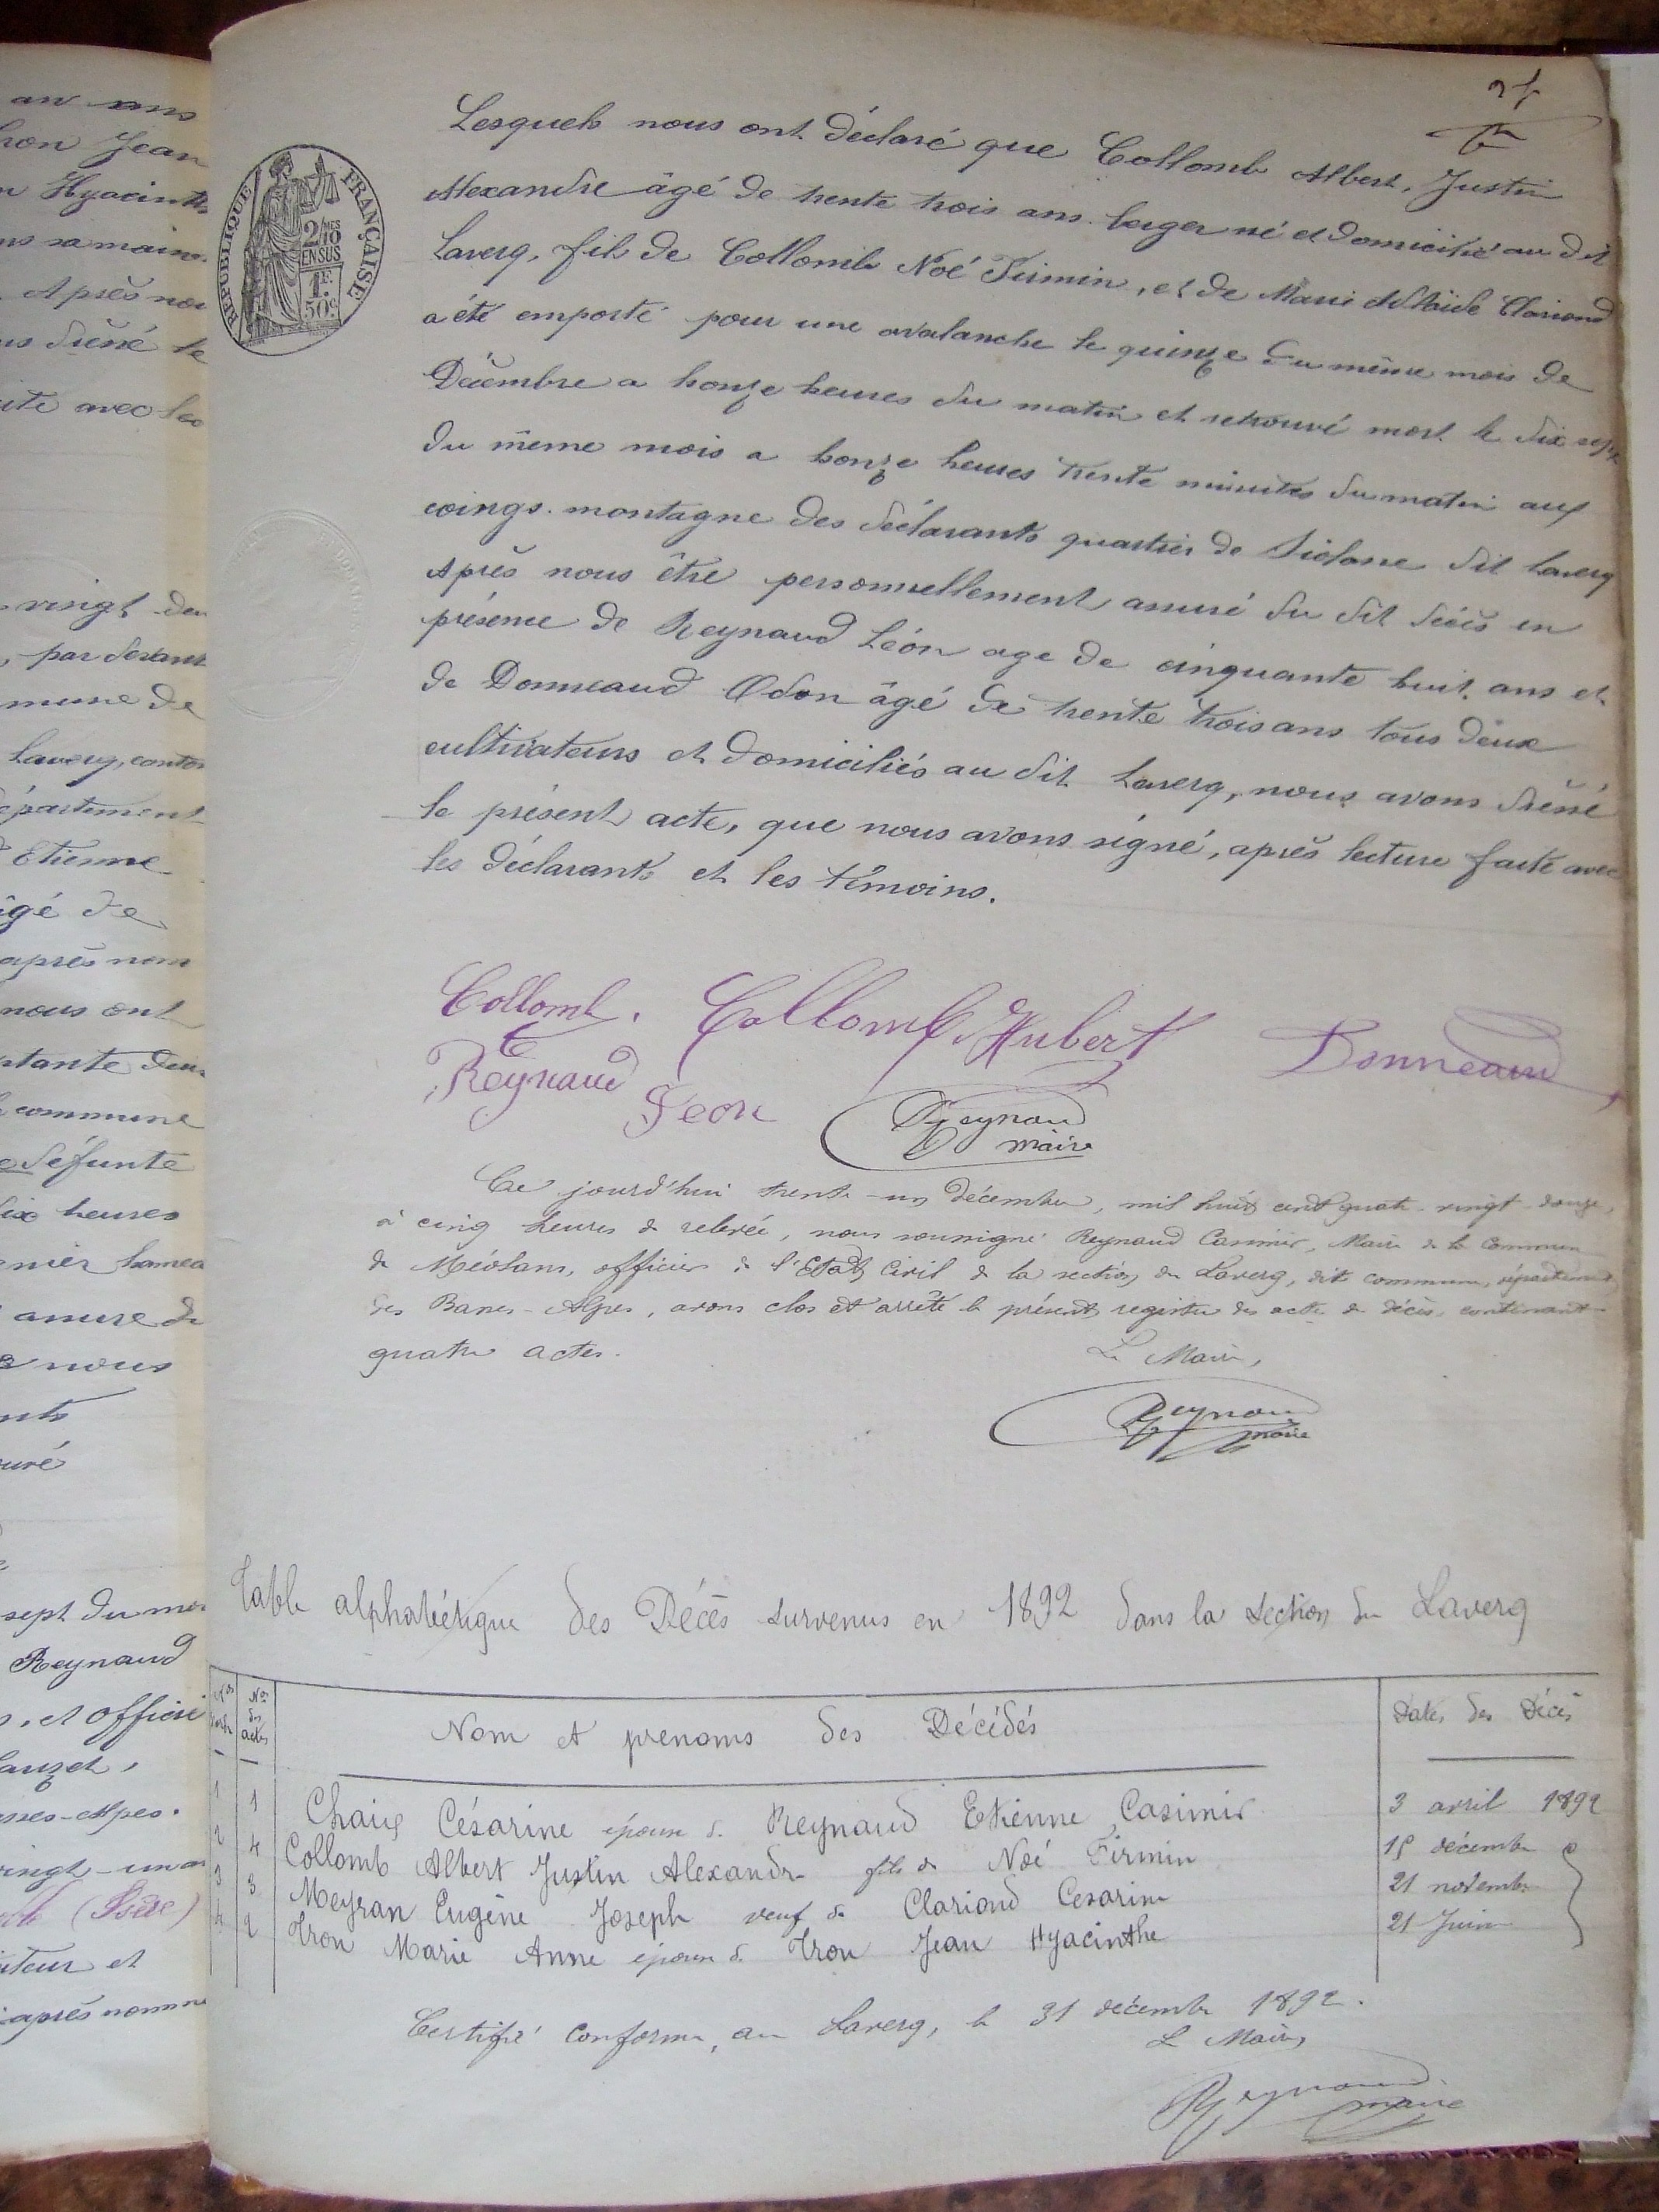 an ans
ron Jean
n Hyacinthe
ns sa maison
Après nou
us dréssé le
ite avec les
vingt-deu
, par devant
mune de
Laverq, canton
département
Etienne
âgé de
après nom
nous ont
ptante deux
commune
défunte
dix heures
nier hamea
assuré du
nous
nts
uré
sept du mo
Reynaud
, et officie
auzet,
sses-Alpes.
vingt-un an
(Isère)
teur et
après nomm
RÉPUBLIQUE FRANÇAISE
2/10MES
EN SUS
1F.
50c.
Lesquels nous ont déclaré que Collomb Albert, Justin
Alexandre âgé de trente trois ans berger né et domicilié au dit
Laverq, fils de Collomb Noé Firmin, et de Marie Adélaïde Clariond
a été emporté pour une avalanche le quinze du même mois de
Décembre a honze heures du matin et retrouvé mort le dix sept
du même mois a honze heures trente minutes du matin aux
coings. montagne des déclarants quartier de Siolane dit Laverq
Après nous être personnellement assuré du dit décès en
présence de Reynaud Léon age de cinquante huit ans et
de Donneaud Odon âgé de trente trois ans tous deux
cultivateurs et domiciliés au dit Laverq, nous avons dréssé
le présent acte, que nous avons signé, après lecture faite avec
les déclarants et les témoins.
Collomb. Collomb Hubert Donneaud
Reynaud Léon Reynaud maire
Ce jourd'hui trente-un décembre, mil huit cent quatre-vingt-douze,
à cinq heures de relevée, nous soussigné Reynaud Casimir, Maire de la Commune
de Méolans, officier de l'Etat Civil de la section du Laverq, dite commune, département
des Basses-Alpes, avons clos et arrêté le présent registre des actes de décès contenant
quatre actes.
Le Maire,
Reynaud maire
Table alphabétique des Décès survenus en 1892 dans la section du Laverq
Nos d'ordre Nos des actes Nom et prenoms des Décédés Dates des Décès
1 1 Chaix Césarine épouse de Reynaud Etienne Casimir 3 avril 1892
2 4 Collomb Albert Justin Alexandre fils de Noé Firmin 15 décembre
3 3 Meyran Eugène Joseph veuf de Clariond Cesarine 21 novembre
4 2 Tron Marie Anne épouse de Tron Jean Hyacinthe 21 Juin
Certifié conforme, au Laverq, le 31 décembre 1892.
Le Maire,
Reynaud maire